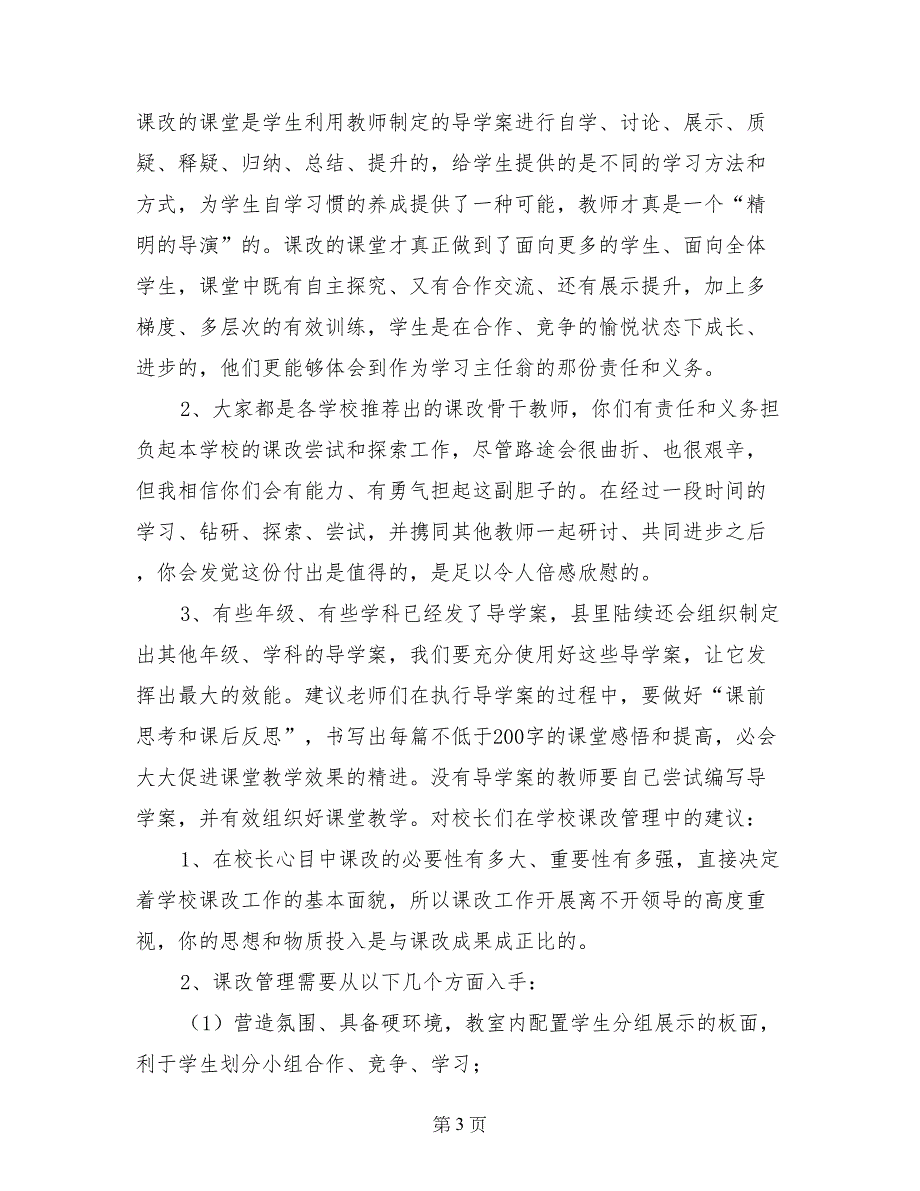 课改的课堂是学生利用教师制定的导学案进行自学、讨论、展示、质
疑、释疑、归纳、总结、提升的，给学生提供的是不同的学习方法和
方式，为学生自学习惯的养成提供了一种可能，教师才真是一个“精
明的导演”的。课改的课堂才真正做到了面向更多的学生、面向全体
学生，课堂中既有自主探究、又有合作交流、还有展示提升，加上多
梯度、多层次的有效训练，学生是在合作、竞争的愉悦状态下成长、
进步的，他们更能够体会到作为学习主任翁的那份责任和义务。
2、大家都是各学校推荐出的课改骨干教师，你们有责任和义务担
负起本学校的课改尝试和探索工作，尽管路途会很曲折、也很艰辛，
但我相信你们会有能力、有勇气担起这副胆子的。在经过一段时间的
学习、钻研、探索、尝试，并携同其他教师一起研讨、共同进步之后
，你会发觉这份付出是值得的，是足以令人倍感欣慰的。
3、有些年级、有些学科已经发了导学案，县里陆续还会组织制定
出其他年级、学科的导学案，我们要充分使用好这些导学案，让它发
挥出最大的效能。建议老师们在执行导学案的过程中，要做好“课前
思考和课后反思”，书写出每篇不低于200字的课堂感悟和提高，必会
大大促进课堂教学效果的精进。没有导学案的教师要自己尝试编写导
学案，并有效组织好课堂教学。对校长们在学校课改管理中的建议：
1、在校长心目中课改的必要性有多大、重要性有多强，直接决定
着学校课改工作的基本面貌，所以课改工作开展离不开领导的高度重
视，你的思想和物质投入是与课改成果成正比的。
2、课改管理需要从以下几个方面入手：
（1）营造氛围、具备硬环境，教室内配置学生分组展示的板面，
利于学生划分小组合作、竞争、学习；
第 3 页